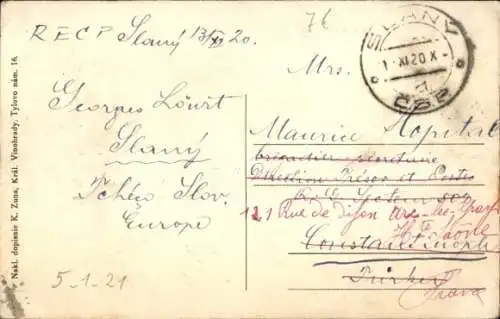 RECP Slaný 13/XI 20.
76
SLANÝ
1.XI.20.X
ČSP
Mrs.
Georges Löurt
Slaný
Tchéco Slov.
Europe
Maurice Hopital
Direction Trésor et Postes
121 Rue de Dijon
Hte Saône
Constantinople
5-1-21
Nakl. dopisnic K. Zuna, Král. Vinohrady, Tylovo nám. 16.